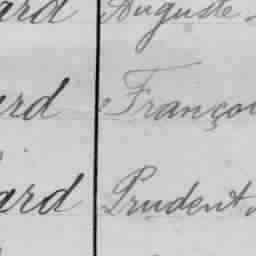 ard Auguste
ard Françoi
ard Prudent